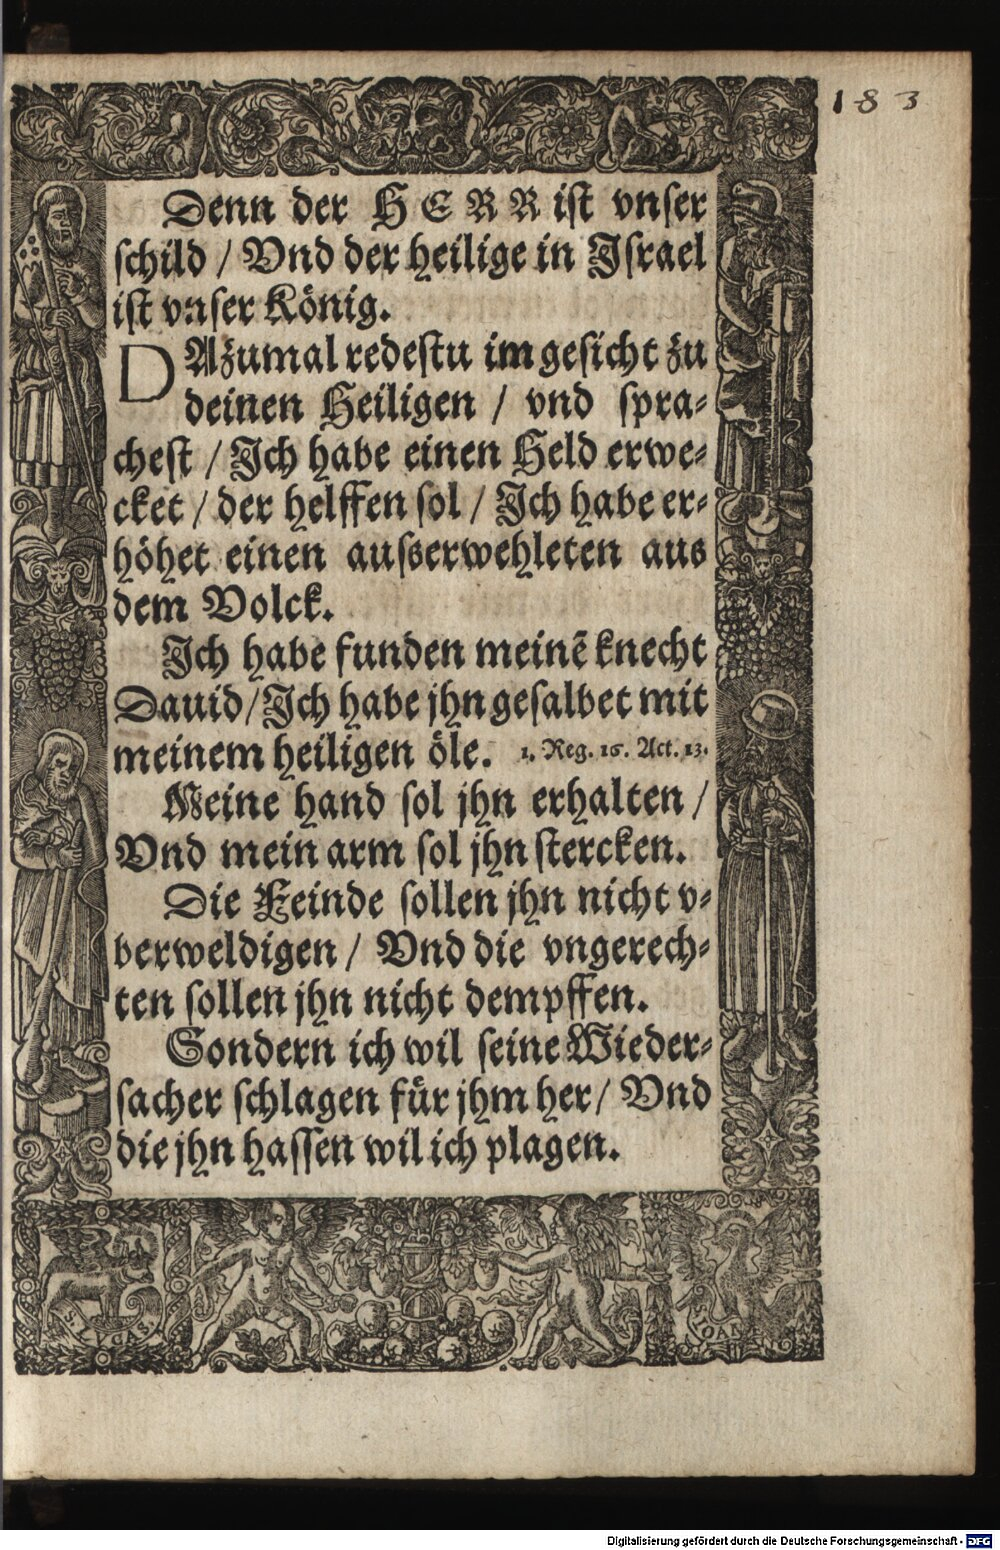 183
Denn der HERR ist vnser
schild / Vnd der heilige in Israel
ist vnser König.
DAzumal redestu im gesicht zu
deinen Heiligen / vnd spra-
chest / Ich habe einen Held erwe-
cket / der helffen sol / Ich habe er-
höhet einen ausserwehleten aus
dem Volck.
Ich habe funden meinē knecht
Dauid / Ich habe jhn gesalbet mit
meinem heiligen öle. 1. Reg. 16. Act. 13.
Meine hand sol jhn erhalten /
Vnd mein arm sol jhn stercken.
Die Feinde sollen jhn nicht v-
berweldigen / Vnd die vngerech-
ten sollen jhn nicht dempffen.
Sondern ich wil seine Wieder-
sacher schlagen für jhm her / Vnd
die jhn hassen wil ich plagen.
S. LVCAS
IOAN
Digitalisierung gefördert durch die Deutsche Forschungsgemeinschaft - DFG